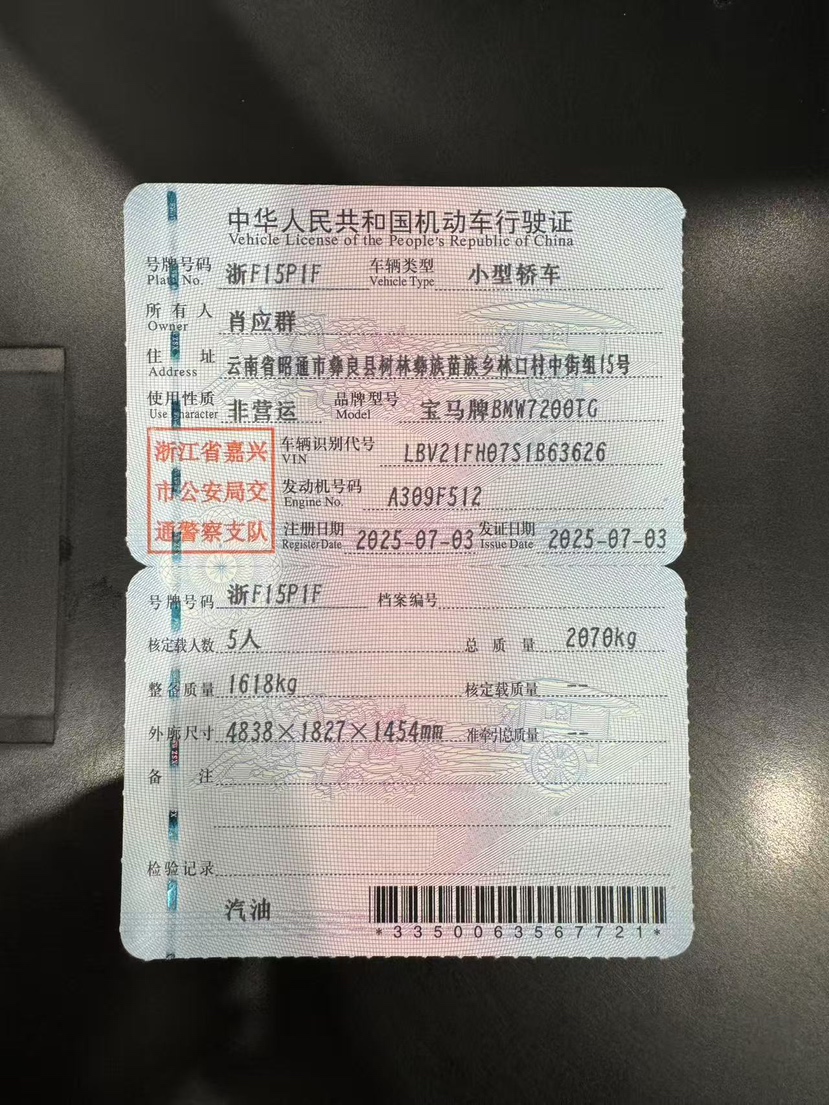 中华人民共和国机动车行驶证
Vehicle License of the People's Republic of China
号牌号码 浙F15P1F 车辆类型 小型轿车
Plate No. Vehicle Type
所有人 肖应群
Owner
住址 云南省昭通市彝良县树林彝族苗族乡林口村中街组15号
Address
使用性质 非营运 品牌型号 宝马牌BMW7200TG
Use Character Model
浙江省嘉兴
市公安局交
通警察支队
车辆识别代号 LBV21FH07S1B63626
VIN
发动机号码 A309F512
Engine No.
注册日期 2025-07-03 发证日期 2025-07-03
Register Date Issue Date
号牌号码 浙F15P1F 档案编号
核定载人数 5人 总质量 2070kg
整备质量 1618kg 核定载质量 --
外廓尺寸 4838×1827×1454mm 准牵引总质量 --
备注
检验记录
汽油
*3350063567721*